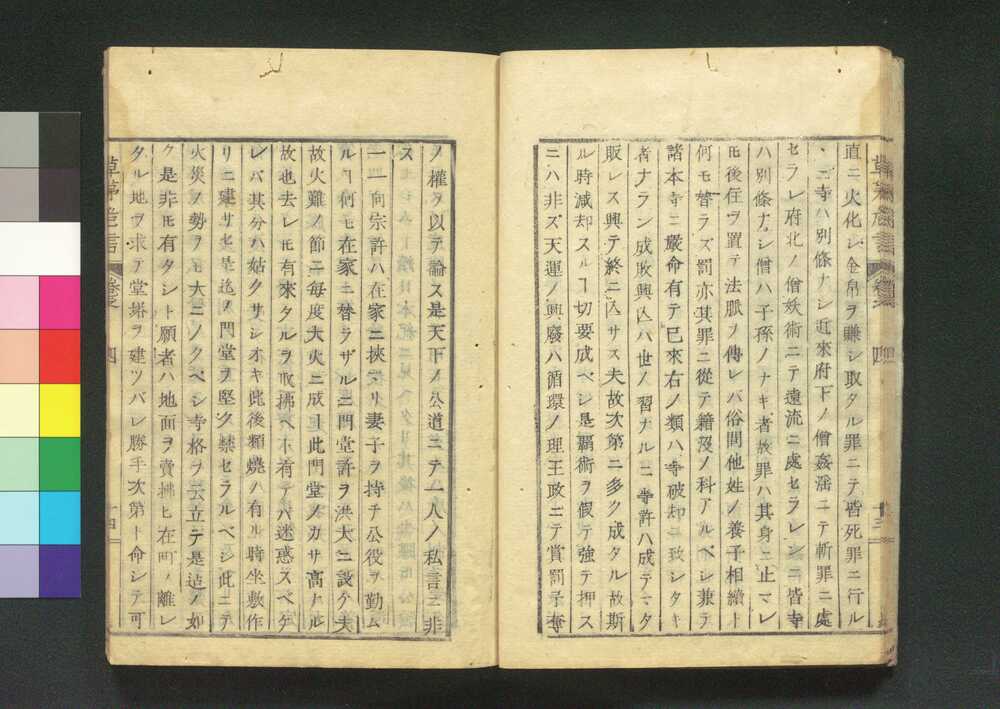 直ニ火化シ金帛ヲ賺シ取タル罪ニテ皆死罪ニ行ル
・二寺ハ別條ナシ近來府下ノ僧姦淫ニテ斬罪ニ處
セラレ府北ノ僧妖術ニテ遠流ニ處セラレシニ皆寺
ハ別條ナシ僧ハ子孫ノナキ者故罪ハ其身ニ止マレ
モ後住ヲ置テ法脈ヲ傳レバ俗間他姓ノ養子相續ト
何モ替ラズ罰亦其罪ニ從テ籍沒ノ科アルベシ兼テ
諸本寺ニ嚴命有テ已來右ノ類ハ寺破却ニ致シタキ
者ナラン成敗興亾ハ世ノ習ナルニ寺許ハ成テマタ
販レス興テ終ニ亾サス夫故次第ニ多ク成タル故斯
ル時減却スルヿ切要成ベシ是覇術ヲ假テ強テ押ス
ニハ非ズ天運ノ興廢ハ循環ノ理王政ニテ賞罰予奪
ノ權ヲ以テ論ス是天下ノ公道ニテ一人ノ私言ニ非
ス
一一向宗許ハ在家ニ挾マリ妻子ヲ持チ公役ヲ勤ム
ルヿ何モ在家ニ替ラザルニ門堂許ヲ洪大ニ設ケ夫
故火難ノ節ニ毎度大火ニ成ヿ此門堂ノカサ高ナル
故也去レモ有來タルヲ取拂ヘ不宥テバ迷惑スベケ
レバ其分ハ姑クサシオキ此後類燒ハ有ル時坐敷作
リニ建サセ是迄ノ門堂ヲ堅ク禁セラルベシ此ニテ
火災ノ勢ヲモ大ニノクベシ寺格ヲ云立テ是迠ノ如
ク是非モ有タシト願者ハ地面ヲ賣拂ヒ在町ノ離レ
タル地ヲ求テ堂塔ヲ建ツバレ勝手次第ト命シテ可
草茅危言
四
十四